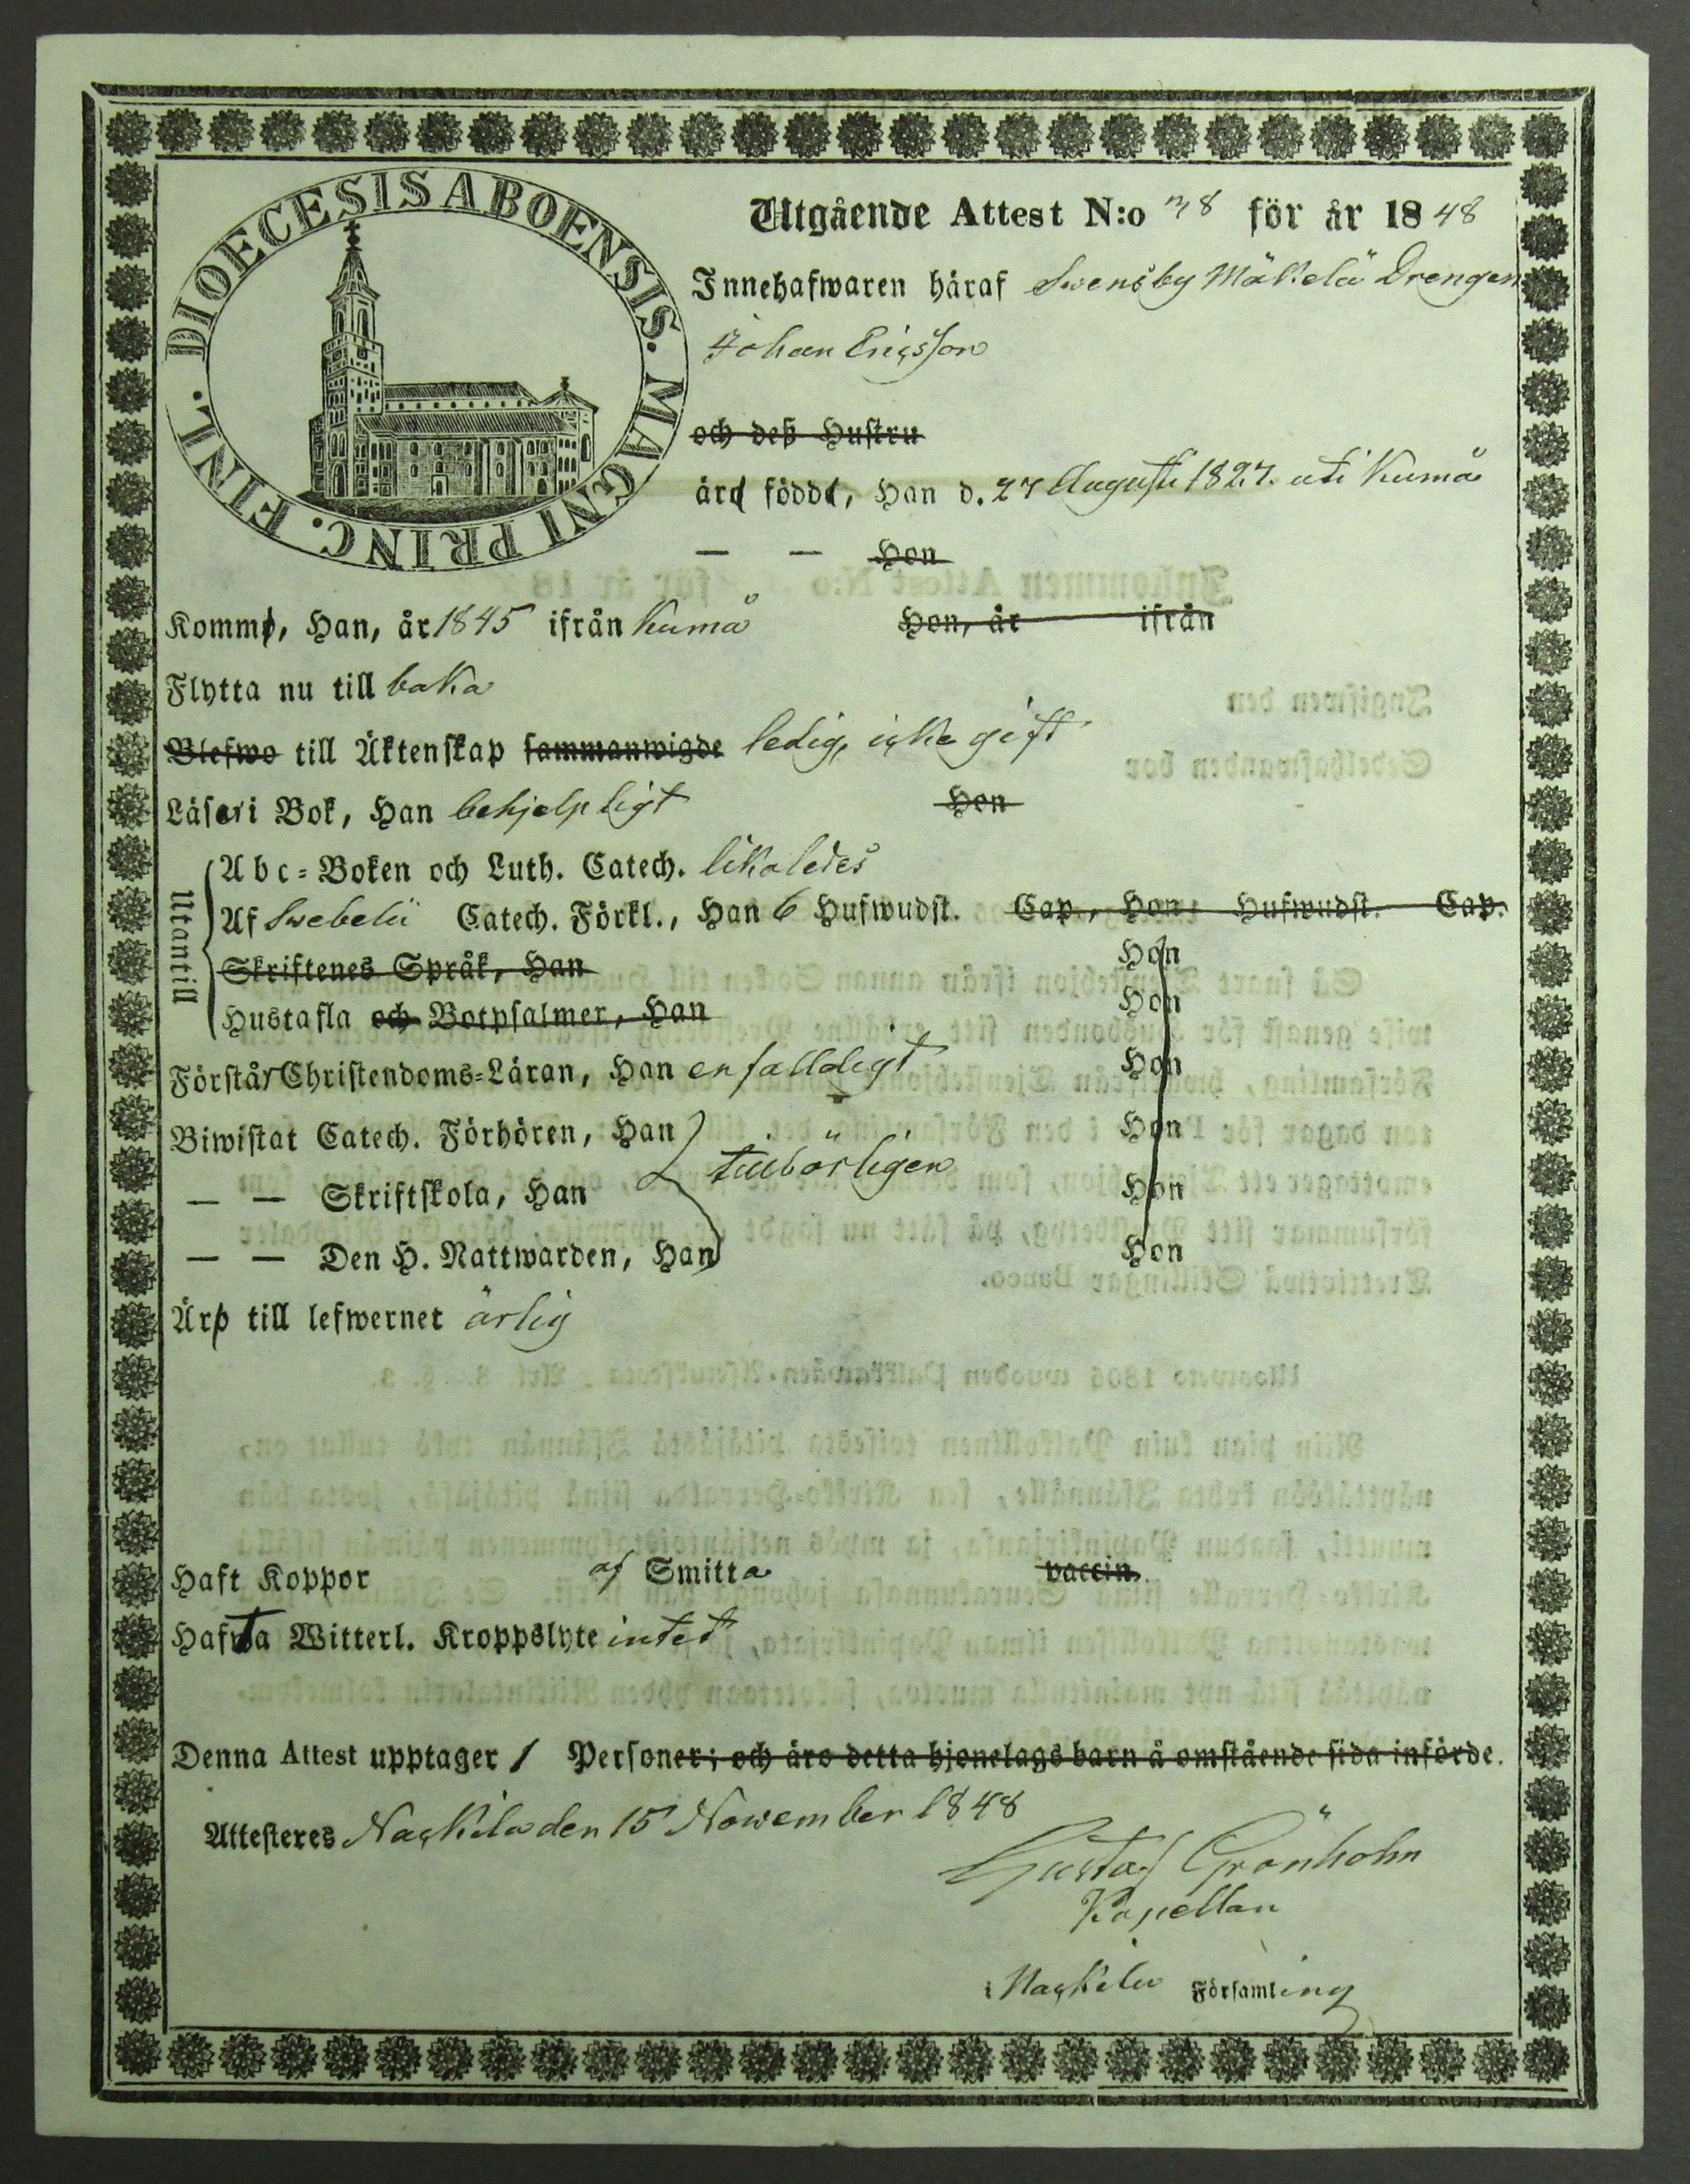 DIOECESIS ABOENSIS. MAGNI PRINC. FINL.
Utgående Attest N:o 38 för år 1848
Innehafwaren häraf Swensby Mäkelä Drengen
Johan Ericsson
och deß Hustru
äro födde, Han d. 27 Augusti 1827. uti Kumå
— — Hon
Komme, Han, år 1845 ifrån Kumå Hon, år ifrån
Flytta nu till baka
Blefwo till Äktenskap sammanwigde ledig, icke gift
Läser i Bok, Han behjelpligt Hon
Utantill
Abc-Boken och Luth. Catech. likaledes
Af Swebelii Catech. Förkl., Han 6 Hufwudst. Cap., Hon: Hufwudst. Cap.
Skriftenes Språk, Han Hon
Hustafla och Botpsalmer, Han Hon
Förstår Christendoms-Läran, Han enfalldigt Hon
Biwistat Catech. Förhören, Han tillbörligen Hon
— — Skriftskola, Han Hon
— — Den H. Nattwarden, Han Hon
Äro till lefwernet ärlig
Haft Koppor af Smitta vaccin.
Hafta Witterl. Kroppslyte intet
Denna Attest upptager 1 Personer; och äro detta hjonelags barn å omstående sida införde.
Attesteres Nackila den 15 November 1848
Gustaf Grönholm
Kapellan
i Nackila Församling